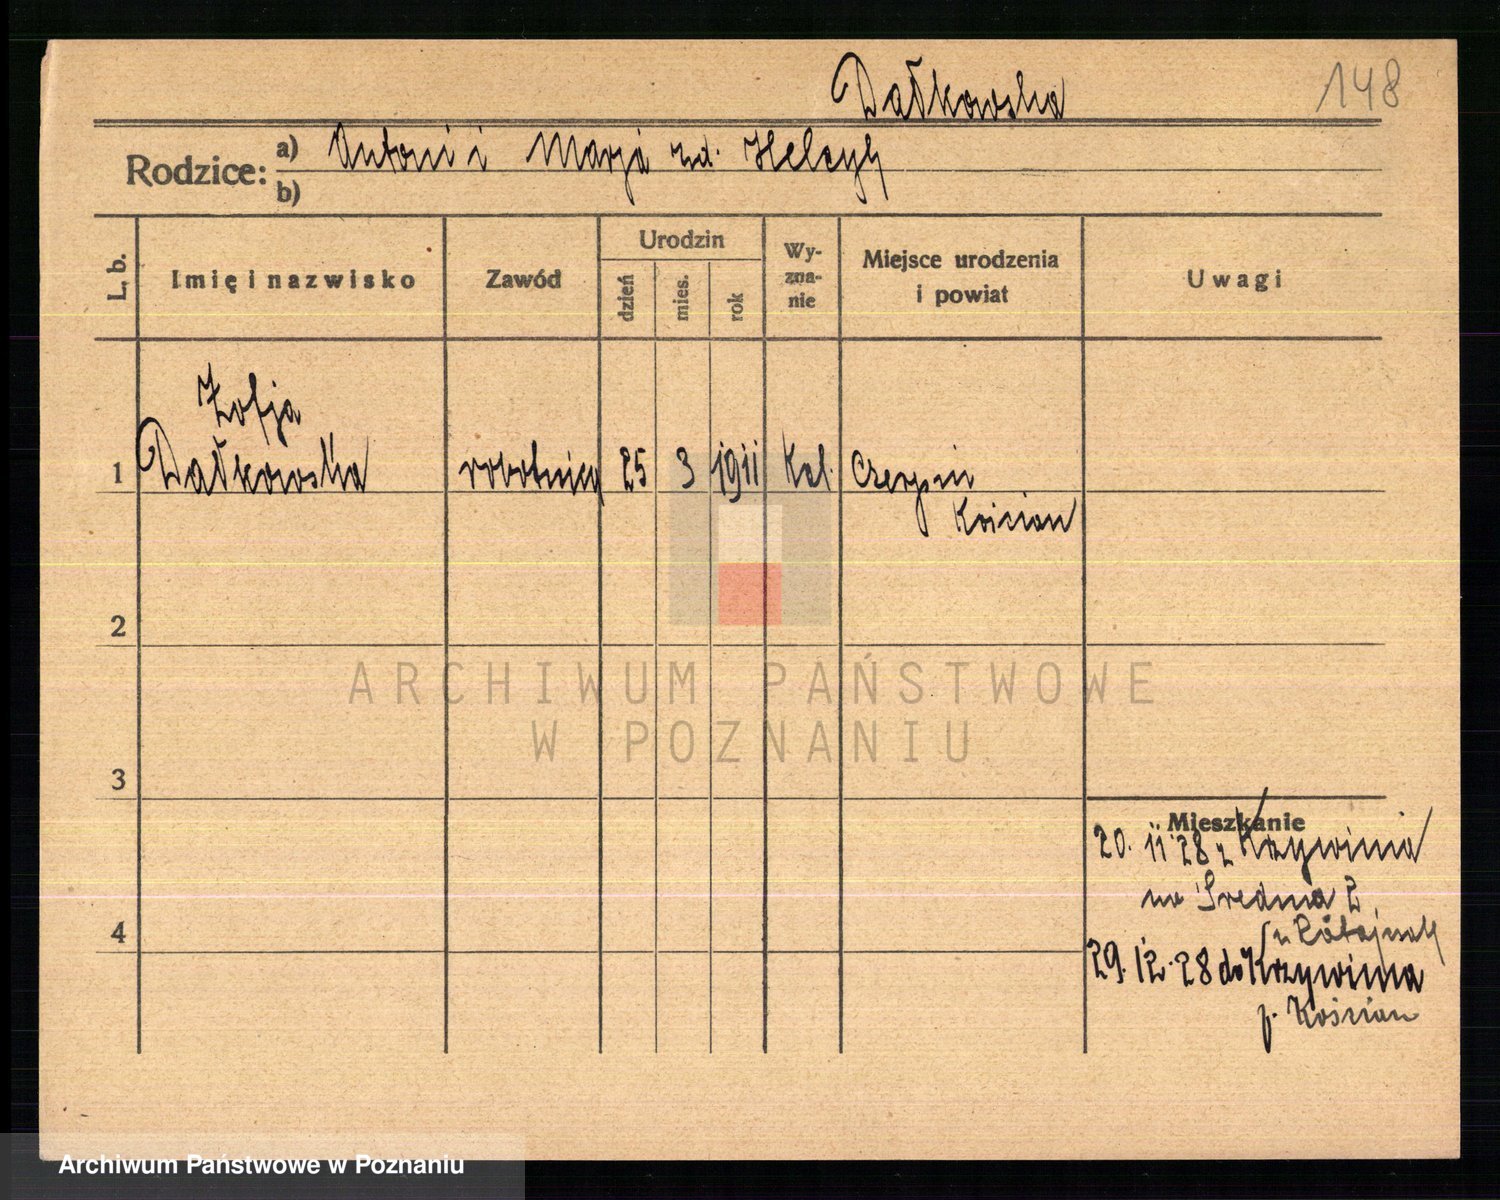 Dałkowska
148
Rodzice: a) Antoni i Marja zd. Helczyk
b)
L, b.
Imię i nazwisko
Zawód
Urodzin
dzień
mies.
rok
Wy-
zna-
nie
Miejsce urodzenia
i powiat
Uwagi
Zofja
1 Dałkowska robotnica 25 3 1911 Kat. Czerpin
Kościan
2
3
4
Mieszkanie
20. 11 28 z Krzywinia
na Średnia 2
29. 12. 28 do Krzywinia
p. Kościan
ARCHIWUM PAŃSTWOWE
W POZNANIU
Archiwum Państwowe w Poznaniu